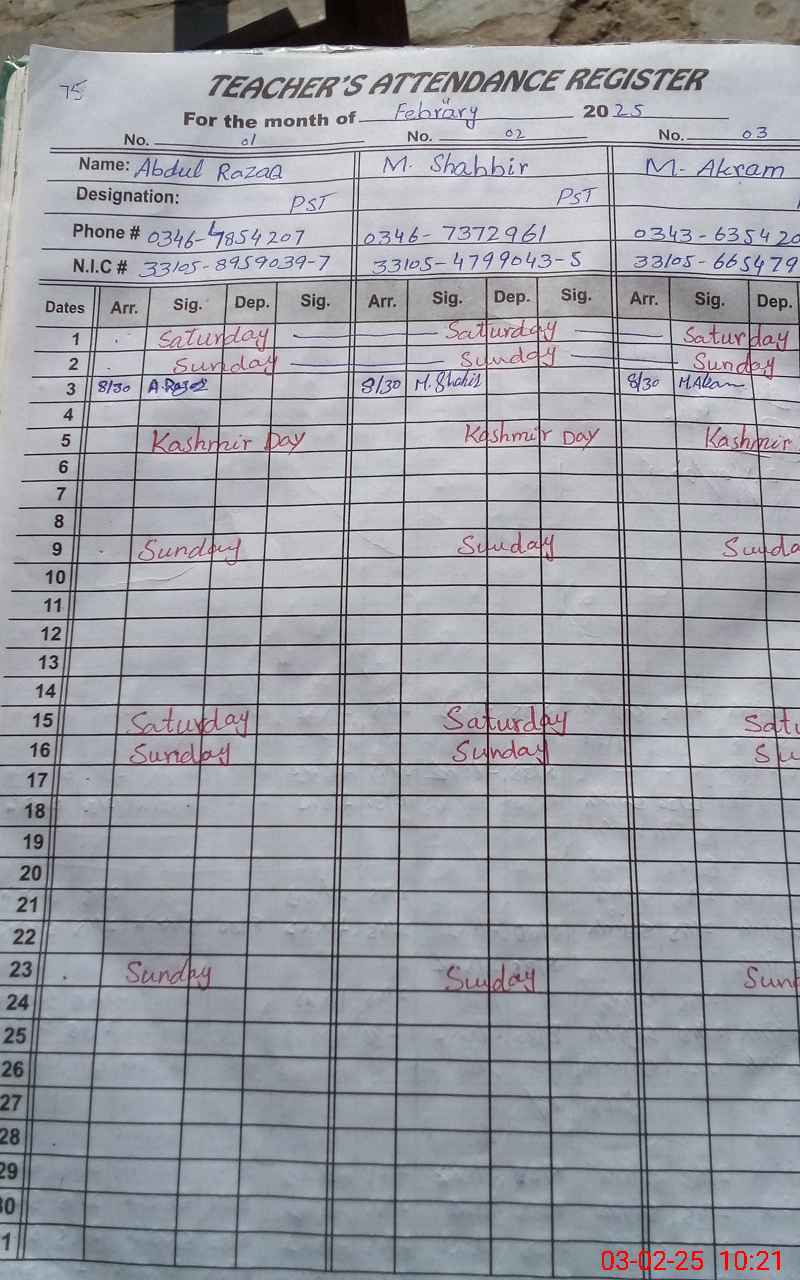 75
TEACHER'S ATTENDANCE REGISTER
For the month of Febrary 2025
No. 01 No. 02 No. 03
Name: Abdul Razaq M. Shabbir M. Akram
Designation: PST PST
Phone # 0346-4854207 0346-7372961 0343-635420
N.I.C # 33105-8959039-7 33105-4799043-5 33105-665479
Dates Arr. Sig. Dep. Sig. Arr. Sig. Dep. Sig. Arr. Sig. Dep.
1 Saturday Saturday Saturday
2 Sunday Sunday Sunday
3 8/30 8/30 8/30
4
5 Kashmir Day Kashmir Day Kashmir
6
7
8
9 Sunday Sunday Sunda
10
11
12
13
14
15 Saturday Saturday Satu
16 Sunday Sunday Su
17
18
19
20
21
22
23 Sunday Sunday Sun
24
25
26
27
28
29
30
1
03-02-25 10:21